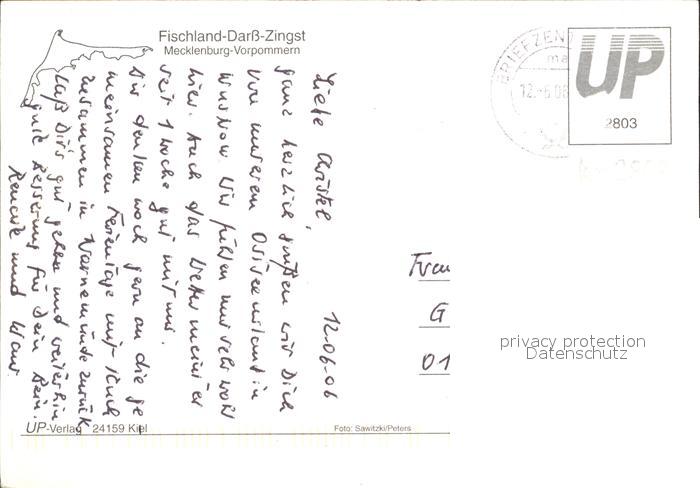 Fischland-Darß-Zingst
Mecklenburg-Vorpommern
BRIEFZEN
12.-6.06
UP
2803
12.06.06
Liebe Christel,
ganz herzlich grüßen wir Dich
von unserem Ostseeurlaub in
Wustrow. Wir fühlen uns sehr wohl
hier. Auch das Wetter meint es
seit 1 Woche gut mit uns.
Wir denken noch gern an die ge
meinsamen Ferientage mit Euch
zusammen in Warnemünde zurück.
Laß Dir's gut gehen und weiterhin
gute Besserung für Dein Bein.
Renate und Klaus
Frau
G
01
privacy protection
Datenschutz
UP-Verlag 24159 Kiel
Foto: Sawitzki/Peters